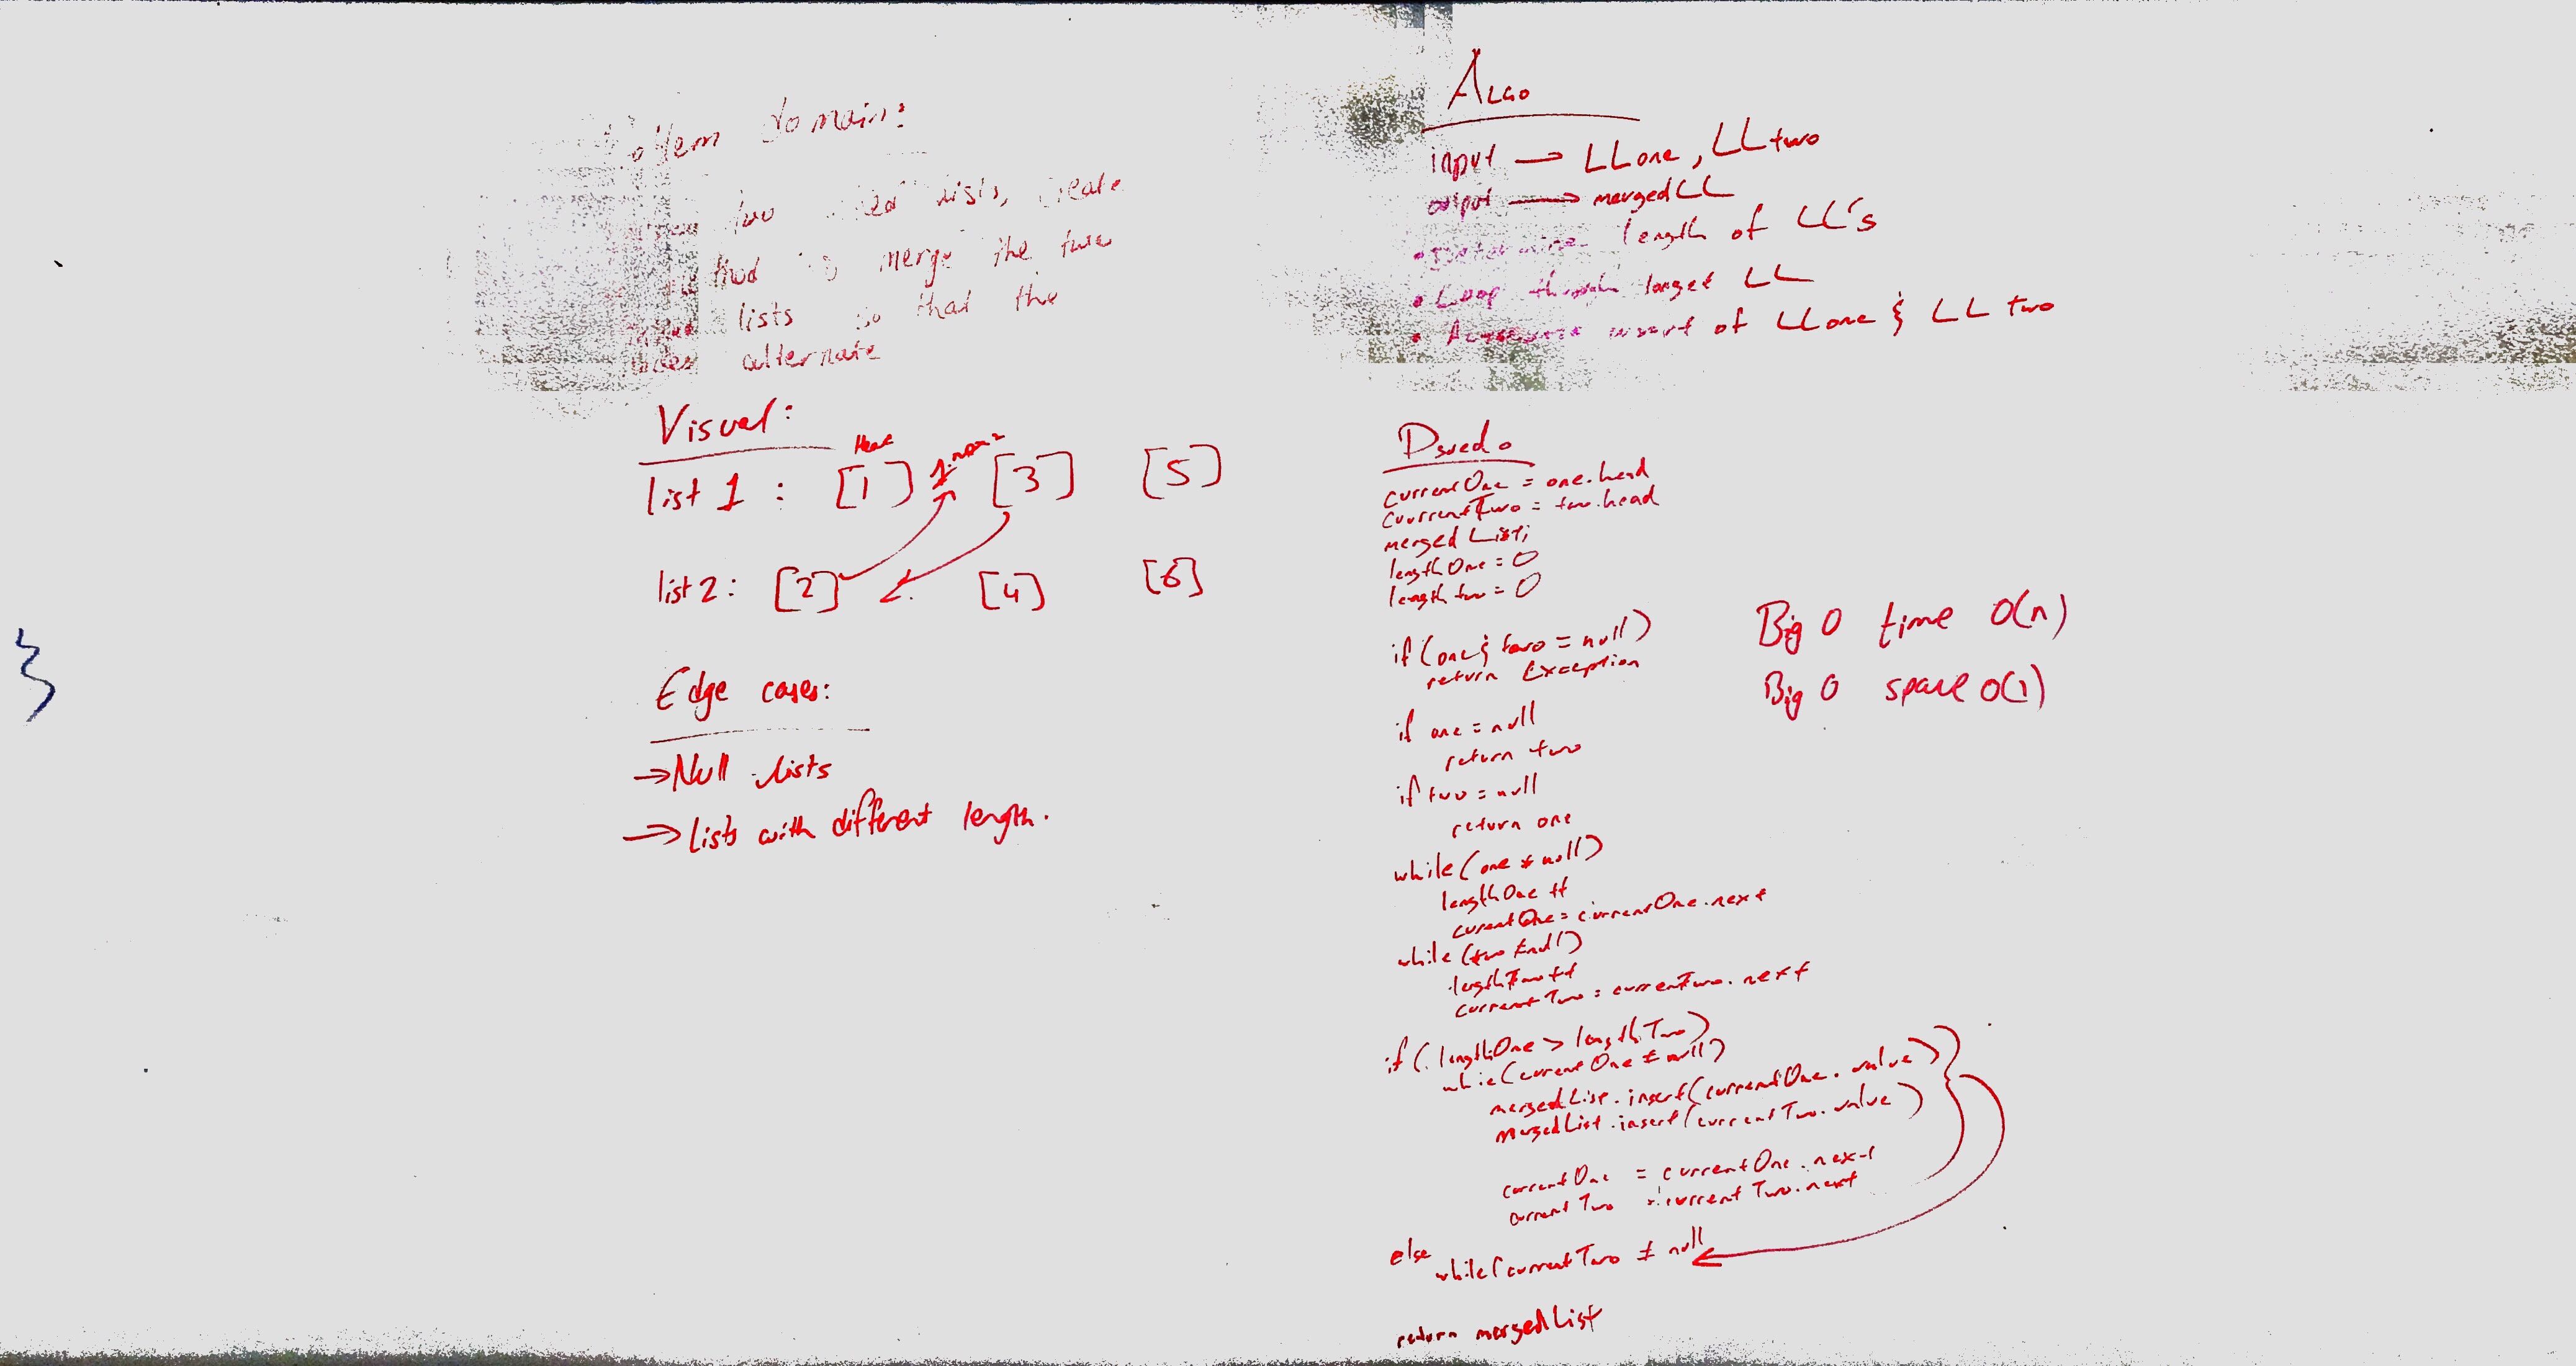 domain:
two lists, create
merge the two
lists so that the
nodes alternate
Visual:
Head 1.next
list 1 : [1] [3] [5]
list 2 : [2] [4] [6]
Edge cases:
→ Null lists
→ Lists with different length.
ALGO
input → LL one, LL two
output → merged LL
• Determine length of LL's
• Loop through longest LL
• insert of LL one & LL two
Psuedo
currentOne = one.head
currentTwo = two.head
merged List;
lengthOne = 0
length two = 0
if (one & two = null)
return Exception
if one = null
return two
if two = null
return one
while (one ≠ null)
lengthOne ++
currentOne = currentOne.next
while (two ≠ null)
lengthTwo ++
currentTwo = currentTwo.next
if (lengthOne > lengthTwo)
while (currentOne ≠ null)
mergedList.insert(currentOne.value)
mergedList.insert(currentTwo.value)
currentOne = currentOne.next
currentTwo = currentTwo.next
else
while (currentTwo ≠ null
return mergedList
Big O time O(n)
Big O space O(1)